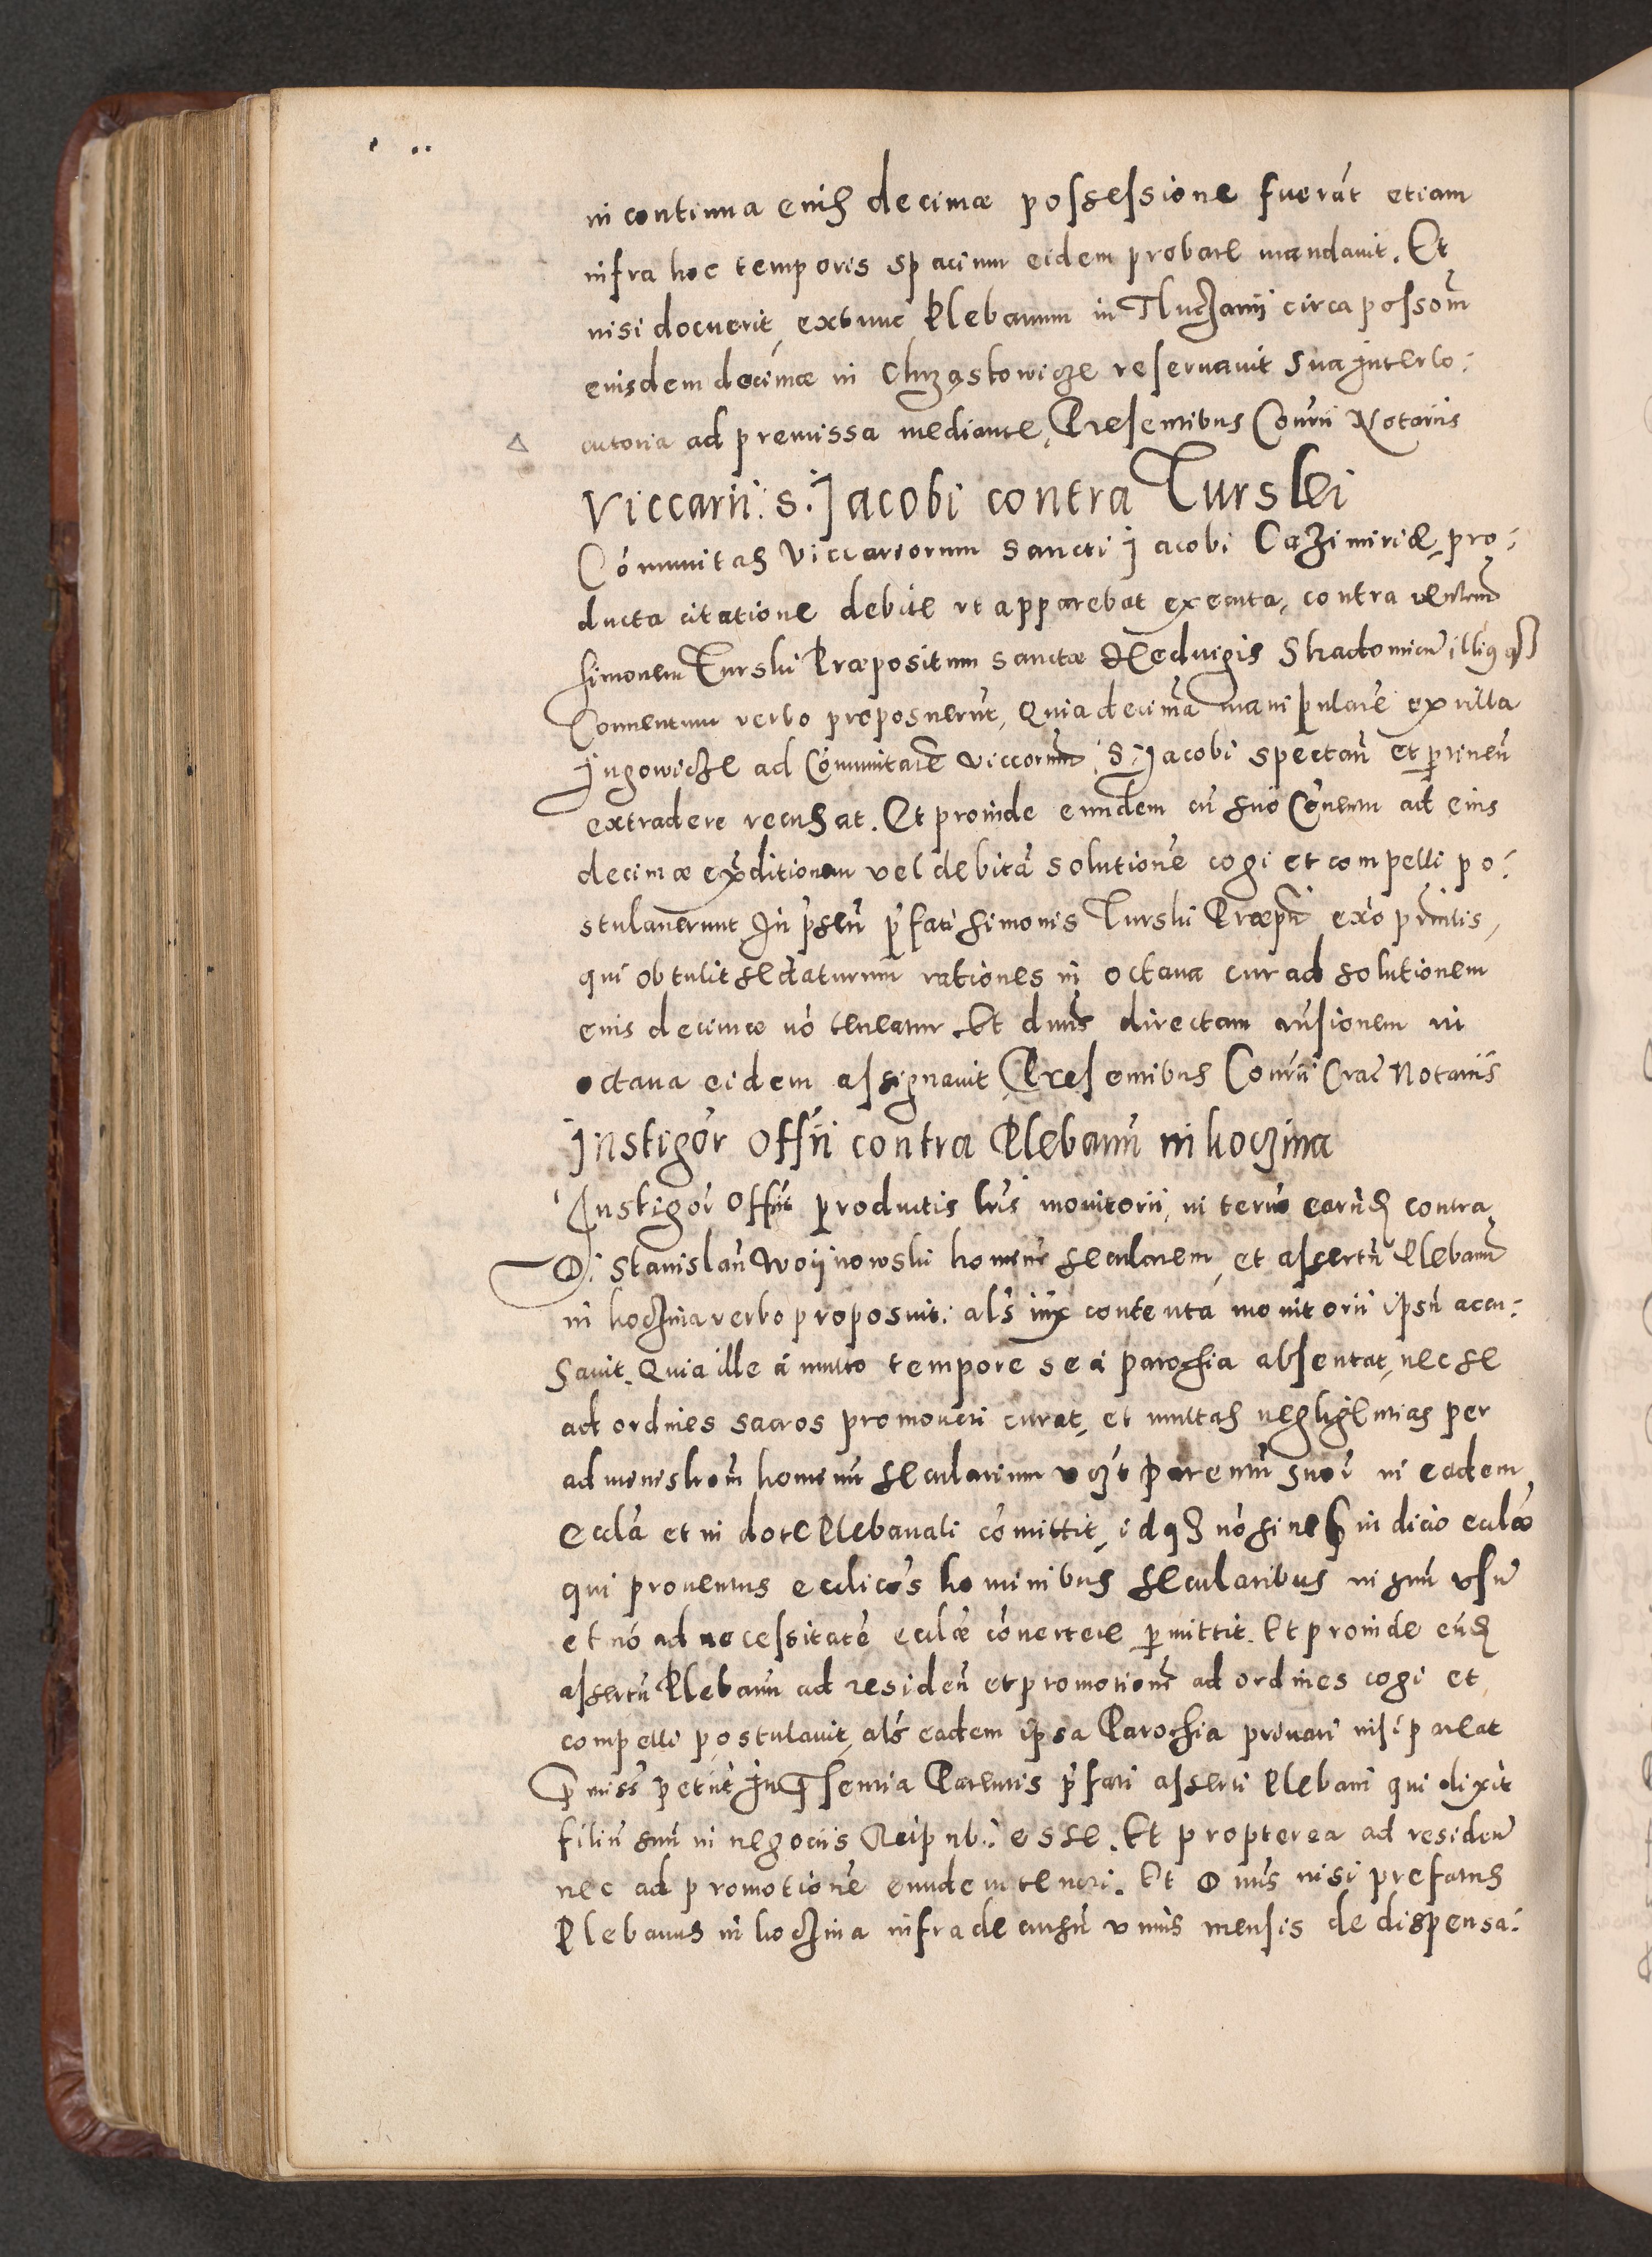 in continua eius decimæ possessione fuerāt etiam
infra hoc temporis spacium eidem probare mandauit. Et
nisi docuerit, extunc Plebanum in Tluczanij circa possōm
eiusdem decimæ in Chrząstowicze reseruauit sua interlo:
cutoria ad premissa mediante, Presentibus Cōnrii Notariis
Viccarii: S. Jacobi contra Turski
Cōmunitas Viccariorum Sancti Jacobi Cazimiriæ, pro:
ducta citatione debite vt apparebat executa, contra
Simonem Turski Præpositum Sanctæ Hedvigis Stradomień illius qȝ
Conuentum verbo proposuerūt, Quia decimā manipularē ex villa
Jugowicze ad Cōmunitatē viccorum S. Jacobi spectań et ptineń
extradere recusat. Et proinde eundem cū suo Cōuentu ad eius
decimæ expditionem vel debitā solutionē cogi et compelli po:
stulauerunt In pseń pfati Simonis Turski Præpti exo pmitis,
qui obtulit se daturum rationes in octaua cur ad solutionem
eius decimæ nō teneatur. Et dnus directam ausionem in
octaua eidem assignauit, Presentibus Cōnrii Crac Notariis
Instigōr Offii contra Plebanū in koczina
Instigōr Offii productis lris monitorii, in termō earūdȝ contra
D. Stanislaū Woijnowski hominē secularem, et assertū Plebanū
in koczina verbo proposuit: als iux contenta monitorii ipsū accu:
sauit. Quia ille á multo tempore se á parochia absentat, nec se
ad ordines sacros promoueri curat, et multas negligentias per
administrōm hominū secularium vczt parentū suōr in eadem
eccla et in dote Plebanali cōmittit, idqȝ nō sine piudicio ecclæ
qui prouentus ecclicos hominibus secularibus in suū vsū
et nō ad necessitatē ecclæ cōuertere pmittit. Et proinde eūdȝ
assertū Plebanū ad resideń et promotionē ad ordines cogi et
compelli postulauit, als eadem ipsa Parochia priuari nisi pareat
pmiss petiit In psentia Parentis pfati asserti Plebani qui dixit
filiū suū in negociis Reipub: esse. Et propterea ad resideń
nec ad promotionē eundem teneri. Et Dnus nisi prefatus
Plebanus in koczina infra decursū vnius mensis de dispensa: